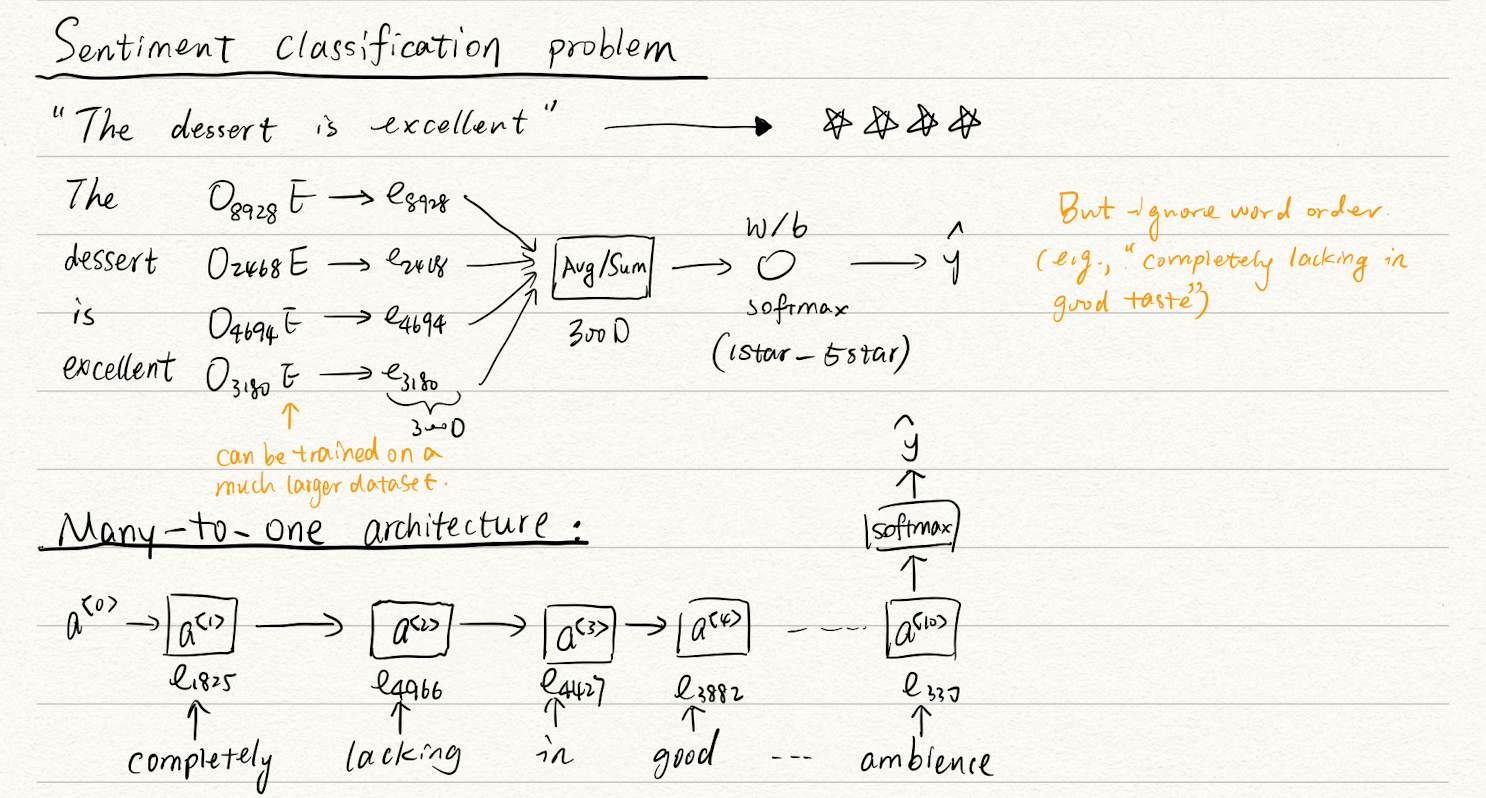 Sentiment classification problem
"The dessert is excellent" → ☆ ☆ ☆ ☆
The O8928 E → e8928
dessert O2468 E → e2468
is O4694 E → e4694
excellent O3180 E → e3180
300D
can be trained on a
much larger dataset.
Avg/Sum
300D
w/b
softmax
(1star - 5star)
ŷ
But ignore word order.
(e.g., "completely lacking in
good taste")
Many-to-one architecture:
ŷ
softmax
a<0> → a<1> → a<2> → a<3> → a<4> ---- a<10>
e1825 e4966 e4427 e3882 e330
completely lacking in good --- ambience